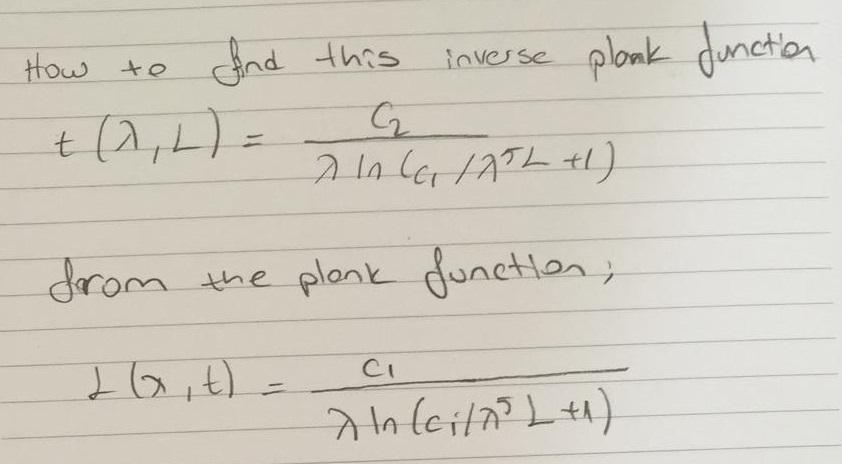 How to find this inverse plank function
t(λ,L) = C₂ / λ ln(C₁/λ⁵L +1)
from the plank function;
L(λ,t) = C₁ / λ ln(C₁/λ⁵L +1)